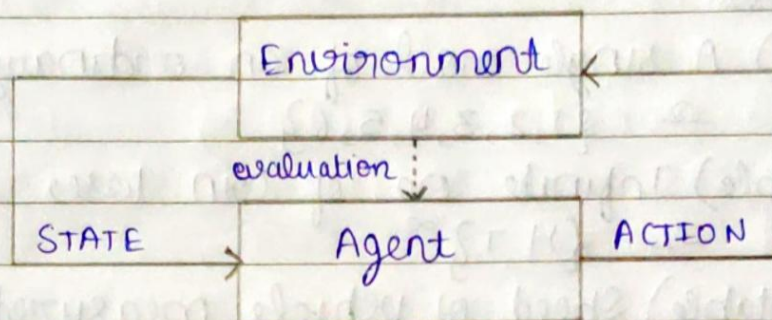 Environment
evaluation
STATE
Agent
ACTION